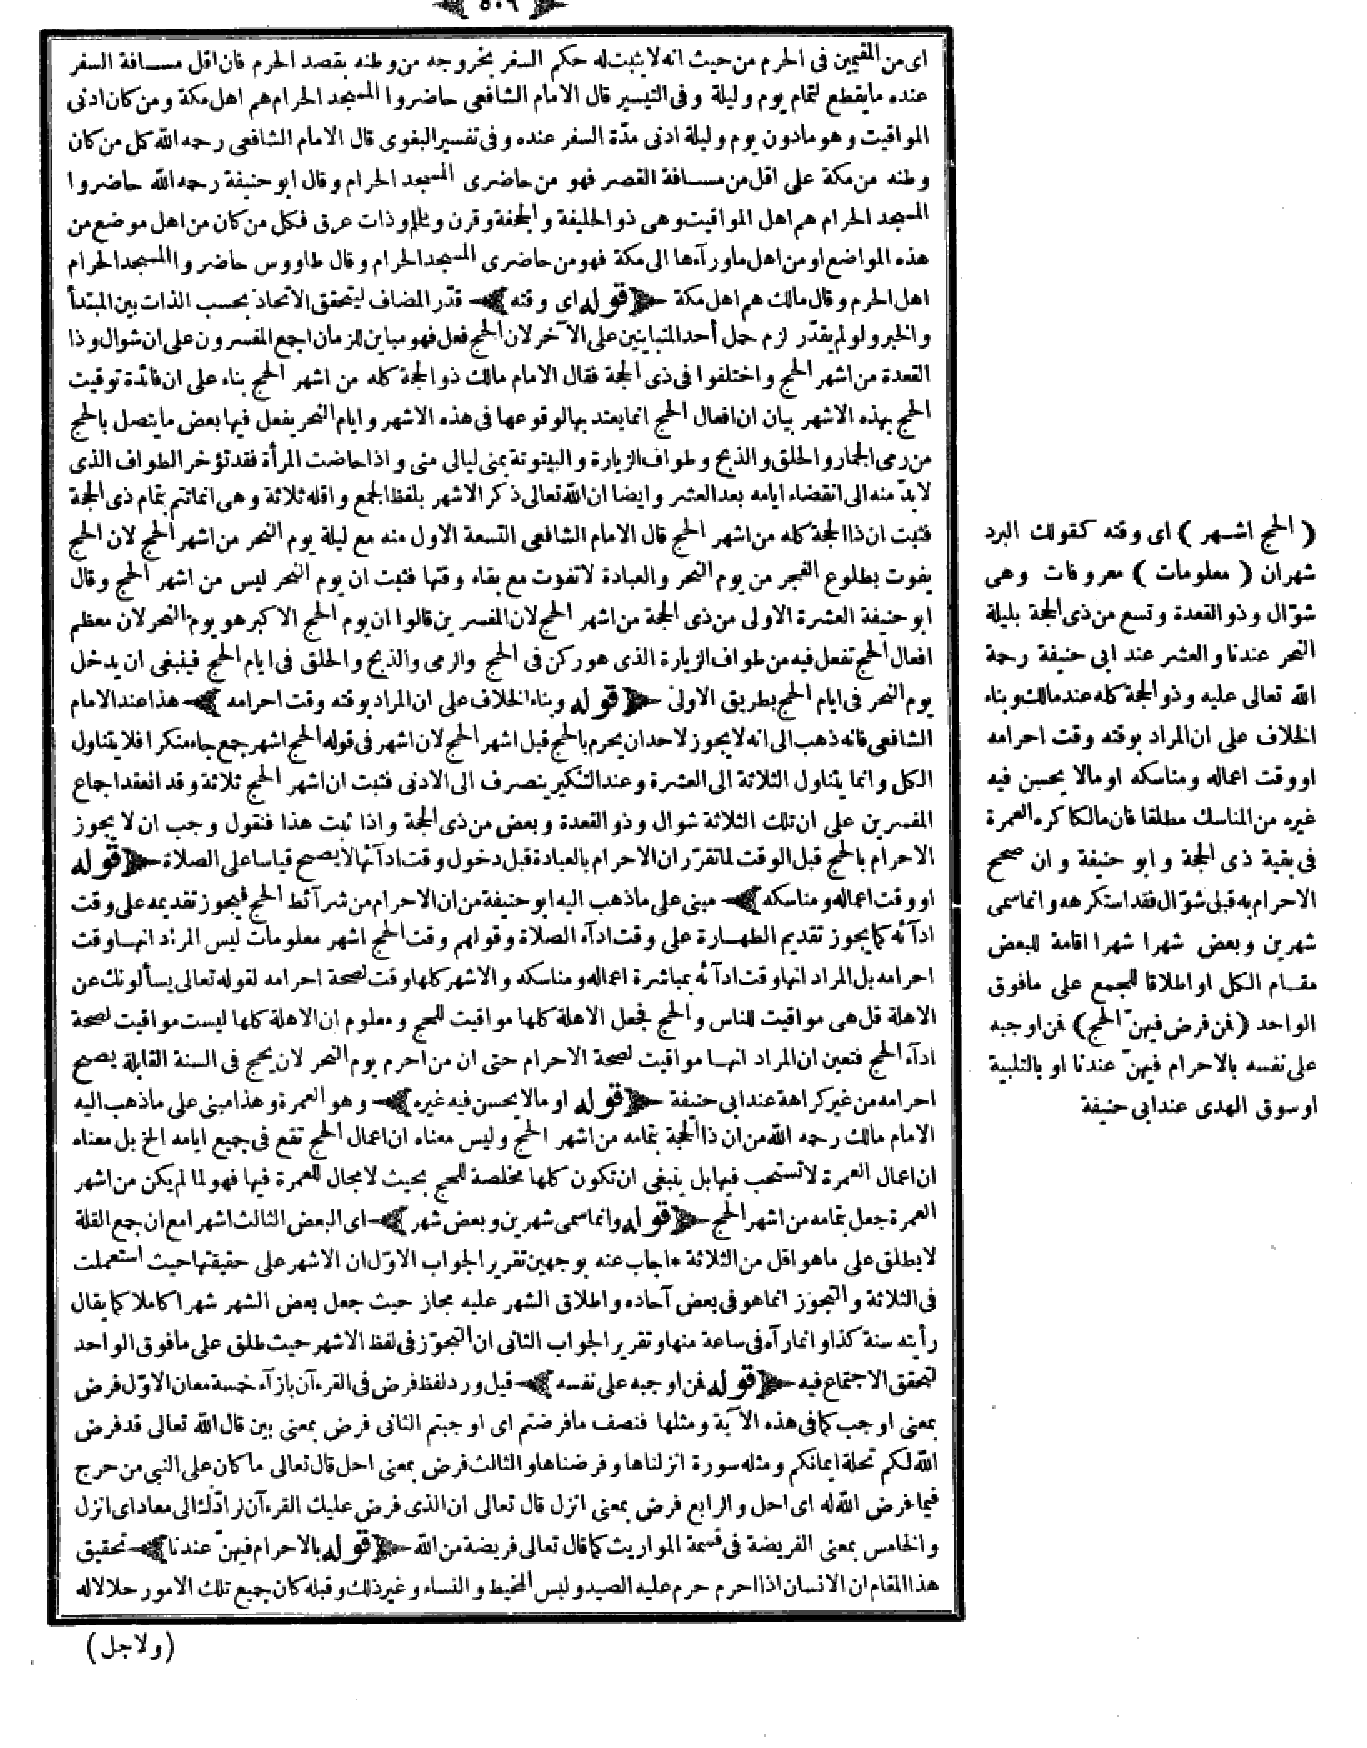 ﴿٥٠٦﴾
اى من المقيمين فى الحرم من حيث انه لا يثبت له حكم السفر بخروجه من وطنه بقصد الحرم فان اقل مسافة السفر
عنده ما يقطع لتمام يوم وليلة وفى التيسير قال الامام الشافعى حاضروا المسجد الحرام هم اهل مكة ومن كان ادنى
المواقيت وهو مادون يوم وليلة ادنى مدّة السفر عنده وفى تفسير البغوى قال الامام الشافعى رحمه الله كل من كان
وطنه من مكة على اقل من مسافة القصر فهو من حاضرى المسجد الحرام وقال ابو حنيفة رحمه الله حاضروا
المسجد الحرام هم اهل المواقيت وهى ذو الحليفة والجحفة وقرن ويلملم وذات عرق فكل من كان من اهل موضع من
هذه المواضع او من اهل ماورآءها الى مكة فهو من حاضرى المسجد الحرام وقال طاووس حاضروا المسجد الحرام
اهل الحرم وقال مالك هم اهل مكة ﴿قوله اى وقته﴾ قدّر المضاف ليتحقق الاتحاد بحسب الذات بين المبتدأ
والخبر ولو لم يقدّر لزم حمل أحد المتباينين على الآخر لان الحج فعل فهو مباين للزمان اجمع المفسرون على ان شوال وذا
القعدة من اشهر الحج واختلفوا فى ذى الحجة فقال الامام مالك ذو الحجة كله من اشهر الحج بناء على ان فائدة توقيت
الحج بهذه الاشهر بيان ان افعال الحج انما يعتد بها لوقوعها فى هذه الاشهر وايام النحر يفعل فيها بعض ما يتصل بالحج
من رمى الجمار والحلق والذبح وطواف الزيارة والبيتوتة بمنى ليالى منى واذا حاضت المرأة فقد تؤخر الطواف الذى
لابدّ منه الى انقضاء ايامه بعد العشر وايضا ان الله تعالى ذكر الاشهر بلفظ الجمع واقله ثلاثة وهى انما تتم بتمام ذى الحجة
فثبت ان ذا الحجة كله من اشهر الحج قال الامام الشافعى التسعة الاول منه مع ليلة يوم النحر من اشهر الحج لان الحج
يفوت بطلوع الفجر من يوم النحر والعبادة لا تفوت مع بقاء وقتها فثبت ان يوم النحر ليس من اشهر الحج وقال
ابو حنيفة العشرة الاولى من ذى الحجة من اشهر الحج لان المفسرين قالوا ان يوم الحج الاكبر هو يوم النحر لان معظم
افعال الحج تفعل فيه من طواف الزيارة الذى هو ركن فى الحج والرمى والذبح والحلق فى ايام الحج فينبغى ان يدخل
يوم النحر فى ايام الحج بطريق الاولى ﴿قوله وبناء الخلاف على ان المراد بوقته وقت احرامه﴾ هذا عند الامام
الشافعى فانه ذهب الى انه لا يجوز لاحد ان يحرم بالحج قبل اشهر الحج لان اشهر فى قوله الحج اشهر جمع جاء منكرا فلا يتناول
الكل وانما يتناول الثلاثة الى العشرة وعند التنكير ينصرف الى الادنى فثبت ان اشهر الحج ثلاثة وقد انعقد اجماع
المفسرين على ان تلك الثلاثة شوال وذو القعدة وبعض من ذى الحجة واذا ثبت هذا فنقول وجب ان لا يجوز
الاحرام بالحج قبل الوقت لما تقرّر ان الاحرام بالعبادة قبل دخول وقت ادآئها لا يصح قياسا على الصلاة ﴿قوله
او وقت اعماله ومناسكه﴾ مبنى على ماذهب اليه ابو حنيفة من ان الاحرام من شرآئط الحج فيجوز تقديمه على وقت
ادآئه كما يجوز تقديم الطهارة على وقت ادآء الصلاة وقولهم وقت الحج اشهر معلومات ليس المراد انها وقت
احرامه بل المراد انها وقت ادآئه بمباشرة اعماله ومناسكه والاشهر كلها وقت لصحة احرامه لقوله تعالى يسألونك عن
الاهلة قل هى مواقيت للناس والحج فجعل الاهلة كلها مواقيت للحج ومعلوم ان الاهلة كلها ليست مواقيت لصحة
ادآء الحج فتعين ان المراد انها مواقيت لصحة الاحرام حتى ان من احرم يوم النحر لان يحج فى السنة القابلة يصح
احرامه من غير كراهة عند ابى حنيفة ﴿قوله او مالا يحسن فيه غيره﴾ وهو العمرة وهذا مبنى على ماذهب اليه
الامام مالك رحمه الله من ان ذا الحجة بتمامه من اشهر الحج وليس معناه ان اعمال الحج تقع فى جميع ايامه الخ بل معناه
ان اعمال العمرة لا تستحب فيها بل ينبغى ان تكون كلها مخلصة للحج بحيث لا مجال للعمرة فيها فهو لما لم يكن من اشهر
العمرة جعل بتمامه من اشهر الحج ﴿قوله وانما سمى شهرين وبعض شهر﴾ اى البعض الثالث اشهرا مع ان جمع القلة
لا يطلق على ماهو اقل من الثلاثة * اجاب عنه بوجهين تقرير الجواب الاوّل ان الاشهر على حقيقتها حيث استعملت
فى الثلاثة والتجوّز انما هو فى بعض آحاده واطلاق الشهر عليه مجاز حيث جعل بعض الشهر شهرا كاملا كما يقال
رأيته سنة كذا وانما رآه فى ساعة منها وتقرير الجواب الثانى ان التجوّز فى لفظ الاشهر حيث طلق على مافوق الواحد
لتحقق الاجتماع فيه ﴿قوله فمن اوجبه على نفسه﴾ قيل ورد لفظ فرض فى القرءآن بازآء خمسة معان الاوّل فرض
بمعنى اوجب كما فى هذه الآية ومثلها فنصف مافرضتم اى اوجبتم الثانى فرض بمعنى بين قال الله تعالى قد فرض
الله لكم تحلة ايمانكم ومثله سورة انزلناها وفرضناها والثالث فرض بمعنى احل قال تعالى ماكان على النبي من حرج
فيما فرض الله له اى احل والرابع فرض بمعنى انزل قال تعالى ان الذى فرض عليك القرءآن لرادّك الى معاد اى انزل
والخامس بمعنى الفريضة فى قسمة المواريث كما قال تعالى فريضة من الله ﴿قوله بالاحرام فيهنّ عندنا﴾ تحقيق
هذا المقام ان الانسان اذا احرم حرم عليه الصيد ولبس المخيط والنساء وغير ذلك وقبله كان جميع تلك الامور حلالا له
(ولاجل)
(الحج اشهر) اى وقته كقولك البرد
شهران (معلومات) معروفات وهى
شوّال وذو القعدة وتسع من ذى الحجة بليلة
النحر عندنا والعشر عند ابى حنيفة رحمة
الله تعالى عليه وذو الحجة كله عند مالك وبناء
الخلاف على ان المراد بوقته وقت احرامه
او وقت اعماله ومناسكه او مالا يحسن فيه
غيره من المناسك مطلقا فان مالكا كره العمرة
فى بقية ذى الحجة وابو حنيفة وان صحح
الاحرام به قبل شوّال فقد استكرهه وانما سمى
شهرين وبعض شهرا شهرا اقامة للبعض
مقام الكل او اطلاقا للجمع على مافوق
الواحد (فمن فرض فيهنّ الحج) فمن اوجبه
على نفسه بالاحرام فيهنّ عندنا او بالتلبية
او سوق الهدى عند ابى حنيفة